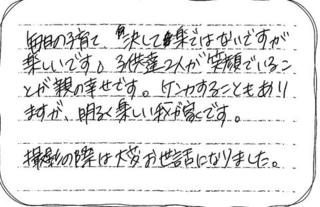 毎日の子育て、決して楽ではないですが
楽しいです。子供達2人が笑顔でいるこ
とが親の幸せです。ケンカすることもあり
ますが、明るく楽しい我が家です。
撮影の際は大変お世話になりました。